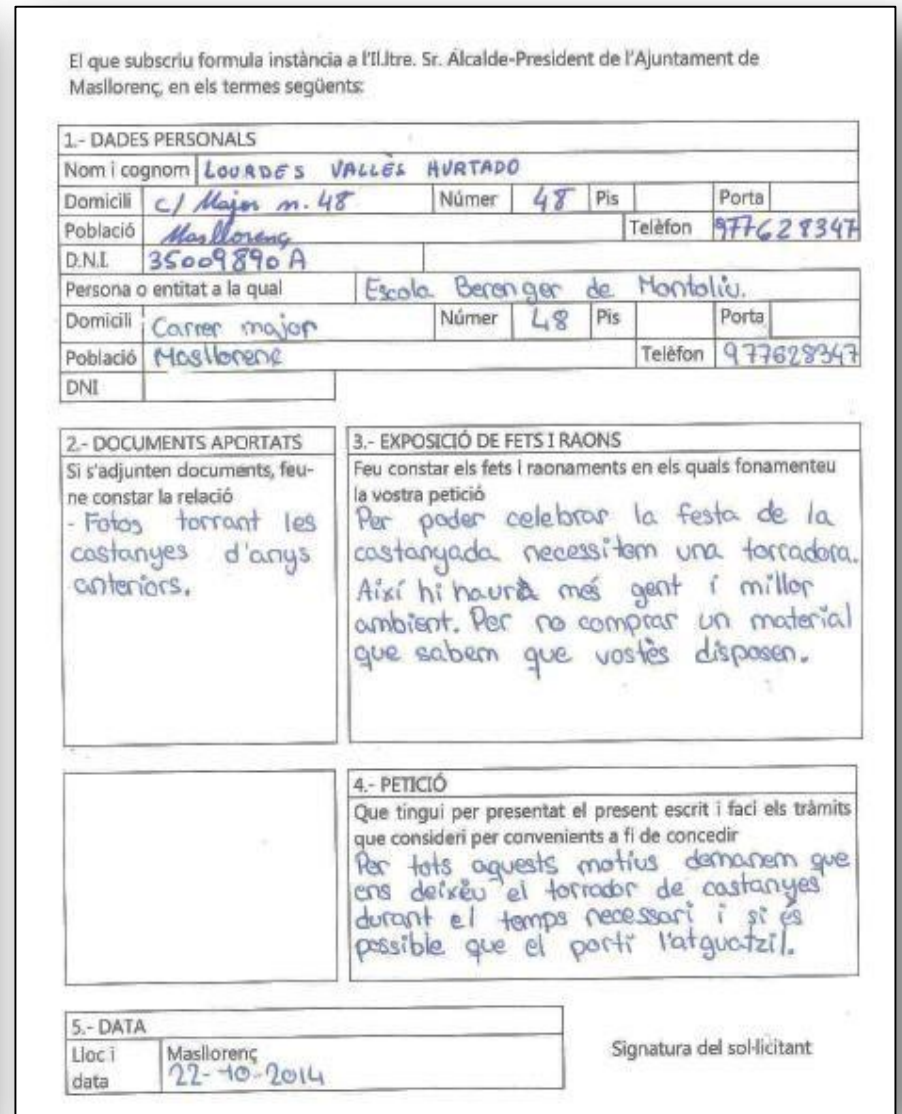 El que subscriu formula instància a l'Il.ltre. Sr. Alcalde-President de l'Ajuntament de
Masllorenç, en els termes següents:
1.- DADES PERSONALS
Nom i cognom LOURDES VALLÈS HURTADO
Domicili c/ Major n. 48 Número 48 Pis Porta
Població Masllorenç Telèfon 977628347
D.N.I. 35009890 A
Persona o entitat a la qual Escola Berenger de Montoliu.
Domicili Carrer major Número 48 Pis Porta
Població Masllorenc Telèfon 977628347
DNI
2.- DOCUMENTS APORTATS
Si s'adjunten documents, feu-
ne constar la relació
- Fotos torrant les
castanyes d'anys
anteriors.
3.- EXPOSICIÓ DE FETS I RAONS
Feu constar els fets i raonaments en els quals fonamenteu
la vostra petició
Per poder celebrar la festa de la
castanyada necessitem una torradora.
Així hi haurà més gent i millor
ambient. Per no comprar un material
que sabem que vostès disposen.
4.- PETICIÓ
Que tingui per presentat el present escrit i faci els tràmits
que consideri per convenients a fi de concedir
Per tots aquests motius demanem que
ens deixéu el torrador de castanyes
durant el temps necessari i si és
possible que el portí l'atguatzil.
5.- DATA
Lloc i
data
Masllorenç
22-10-2014
Signatura del sol·licitant